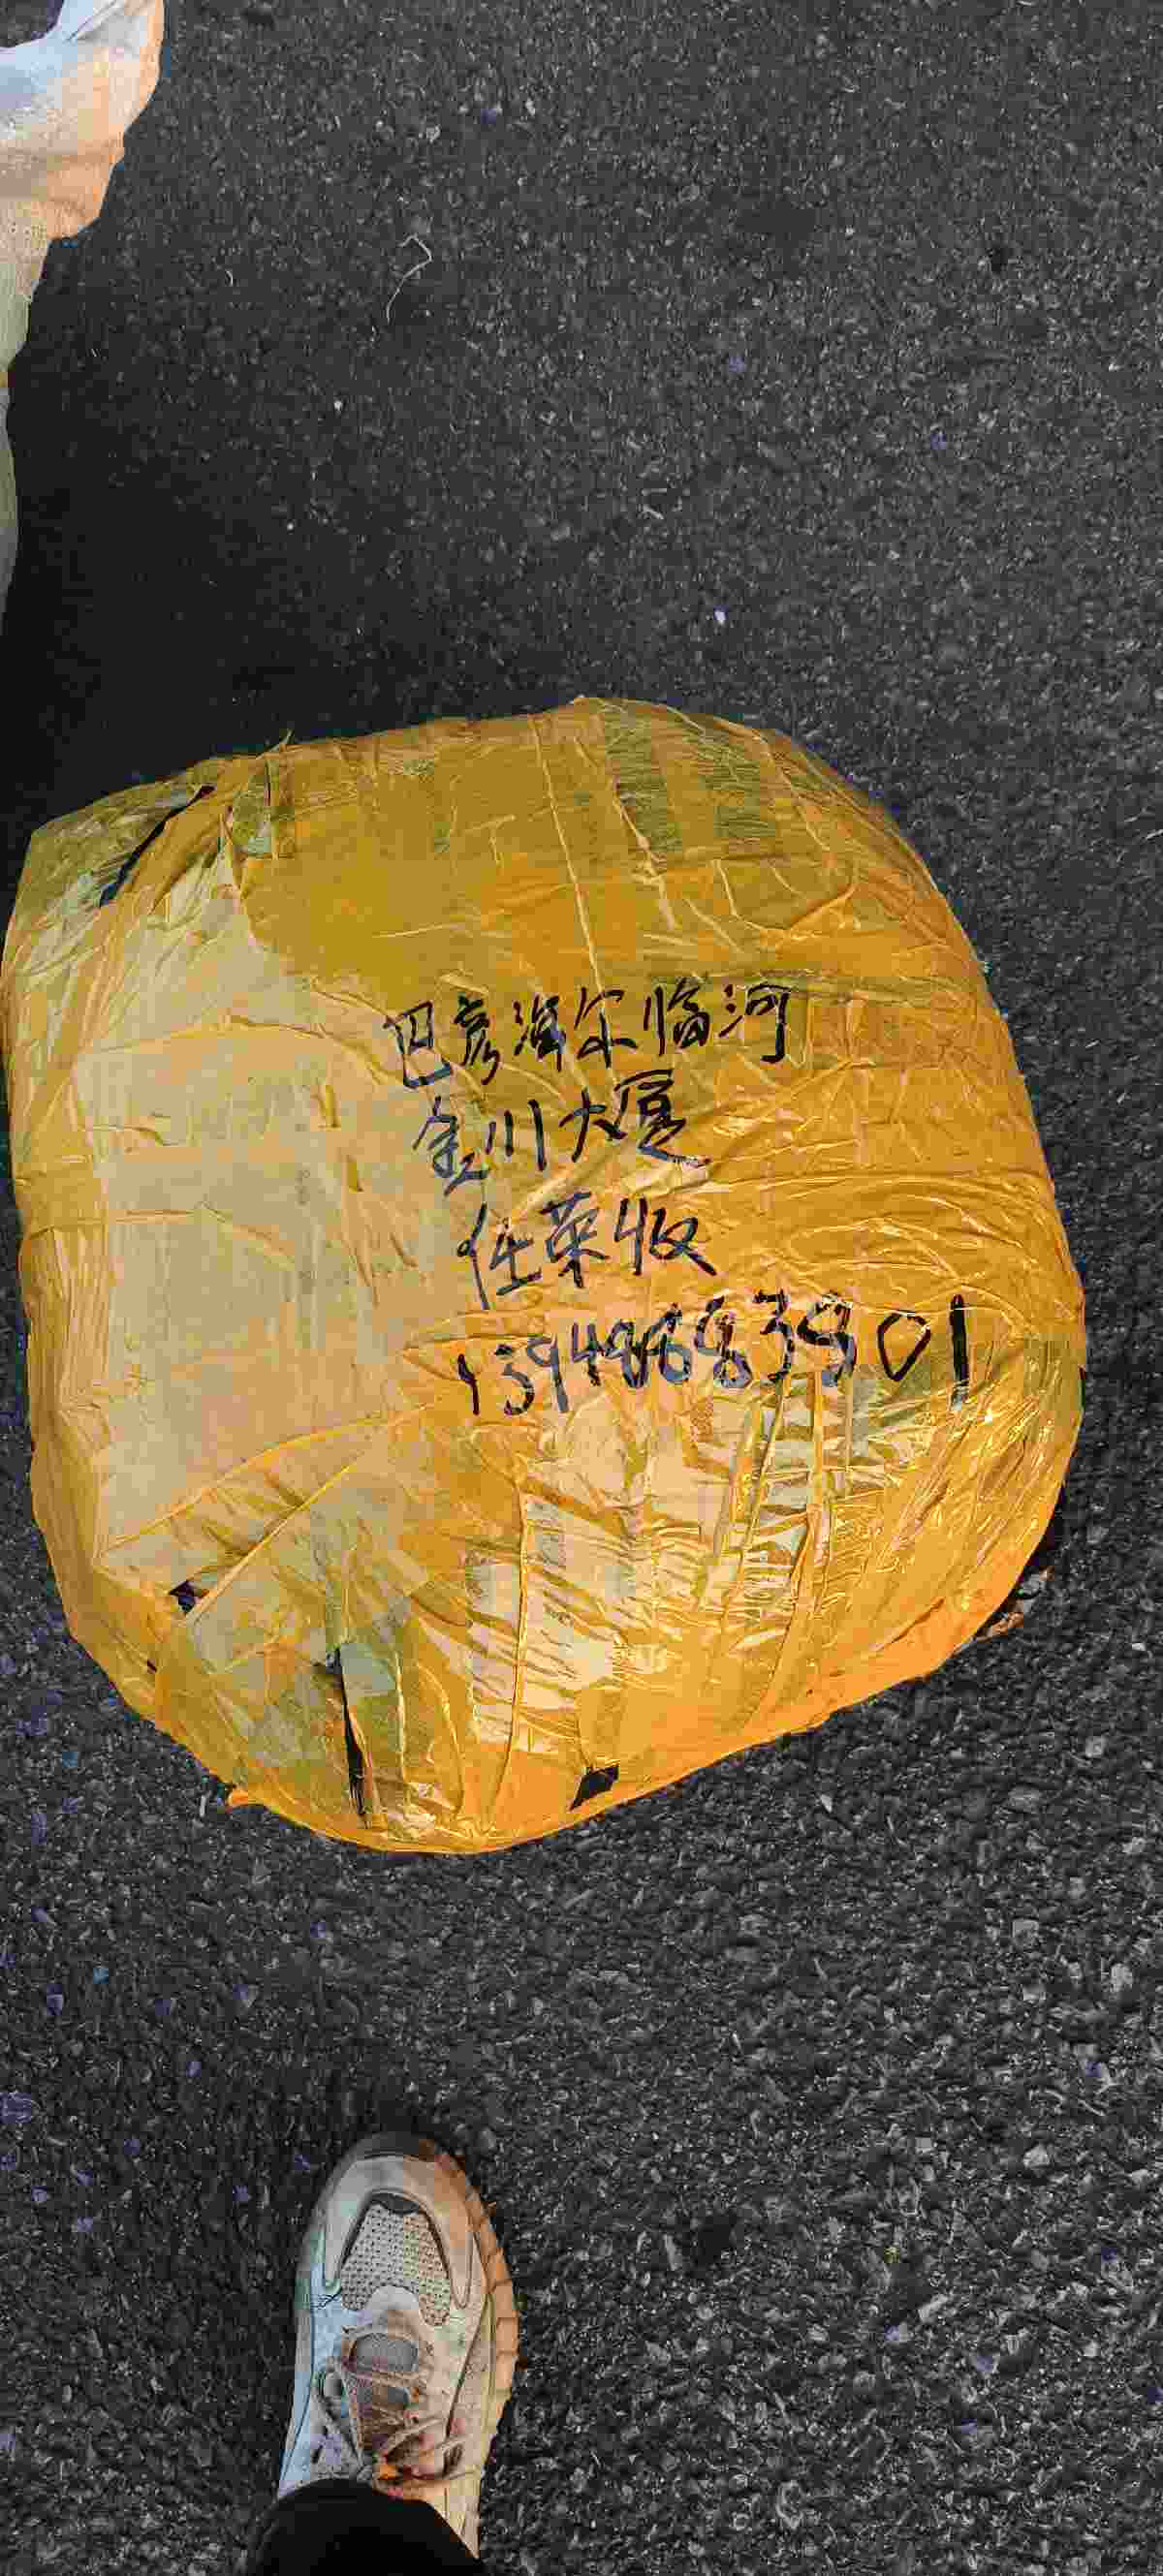 巴彦淖尔临河
金川大厦
任荣收
13948683901